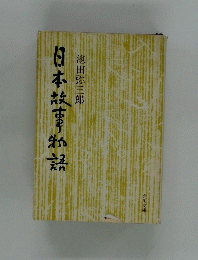 日本故事物語
池田弥三郎